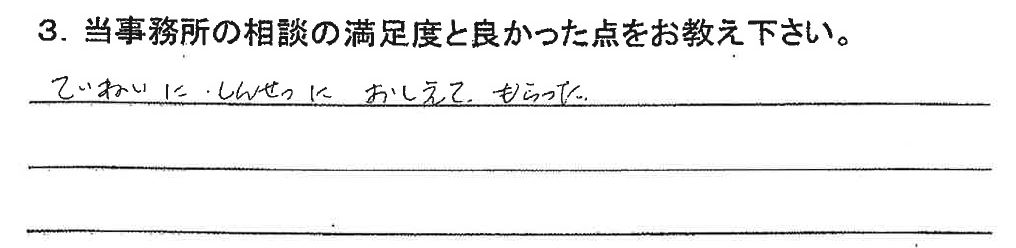 3. 当事務所の相談の満足度と良かった点をお教え下さい。
ていねいに.しんせつに おしえて.もらった.